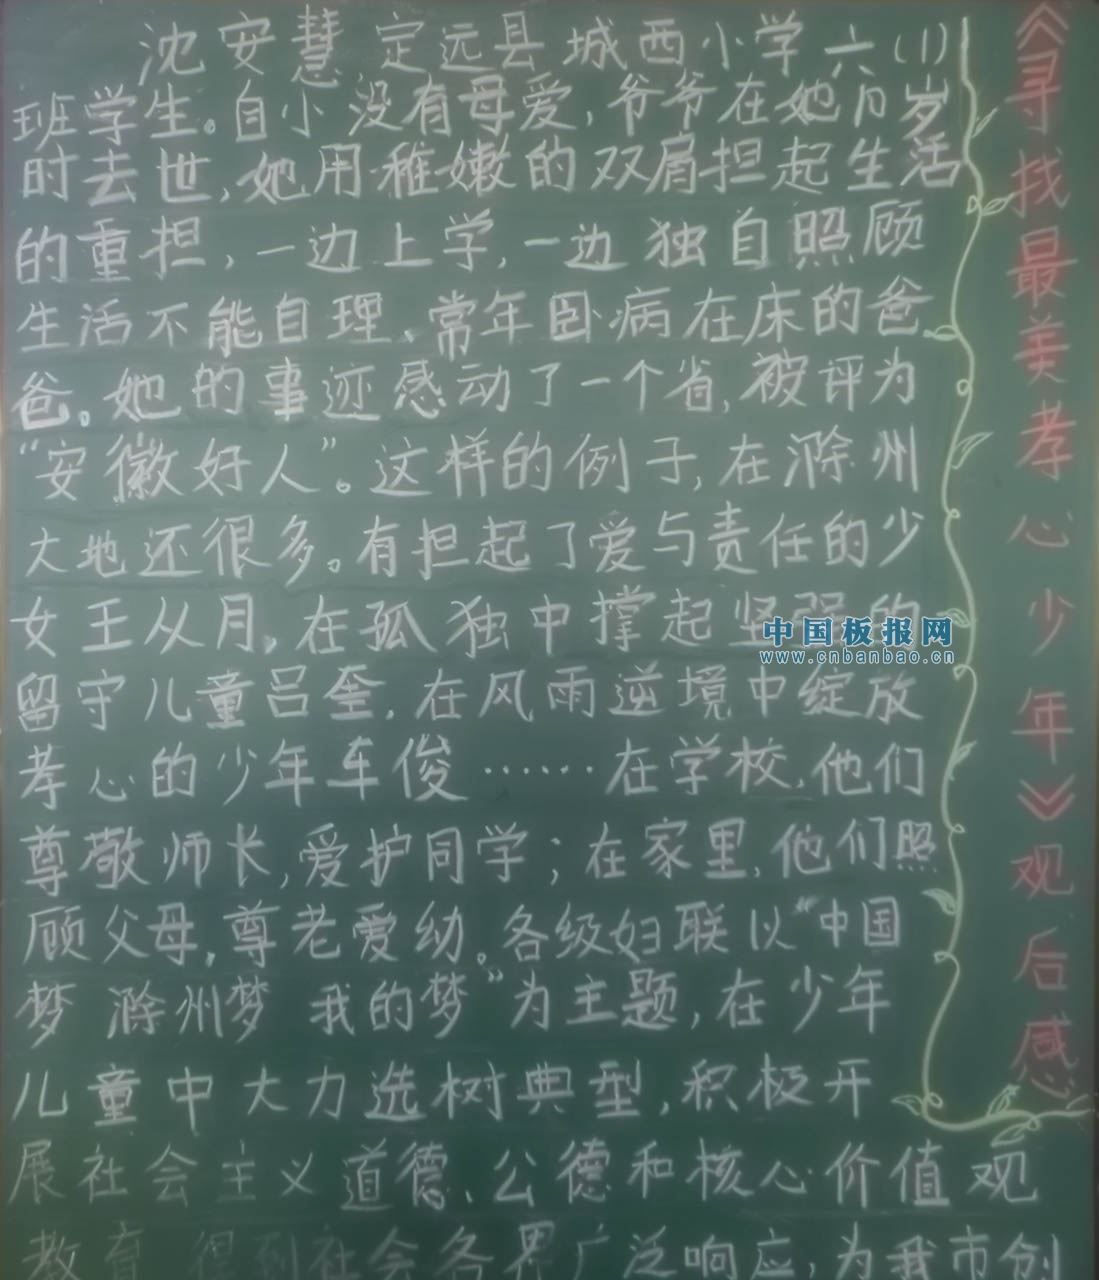 《寻找最美孝心少年》观后感
沈安慧定远县城西小学六(1)
班学生。自小没有母爱,爷爷在她岁
时去世,她用稚嫩的双肩担起生活
的重担,一边上学,一边独自照顾
生活不能自理、常年卧病在床的爸
爸。她的事迹感动了一个省,被评为
“安徽好人”。这样的例子,在滁州
大地还很多。有担起了爱与责任的少
女王从月,在孤独中撑起坚强的
留守儿童吕奎,在风雨逆境中绽放
孝心的少年车俊……在学校,他们
尊敬师长,爱护同学;在家里,他们照
顾父母,尊老爱幼。各级妇联以“中国
梦 滁州梦 我的梦”为主题,在少年
儿童中大力选树典型,积极开
展社会主义道德、公德和核心价值观
教育 得到社会各界广泛响应,为我市创
中国板报网
www.cnbanbao.cn